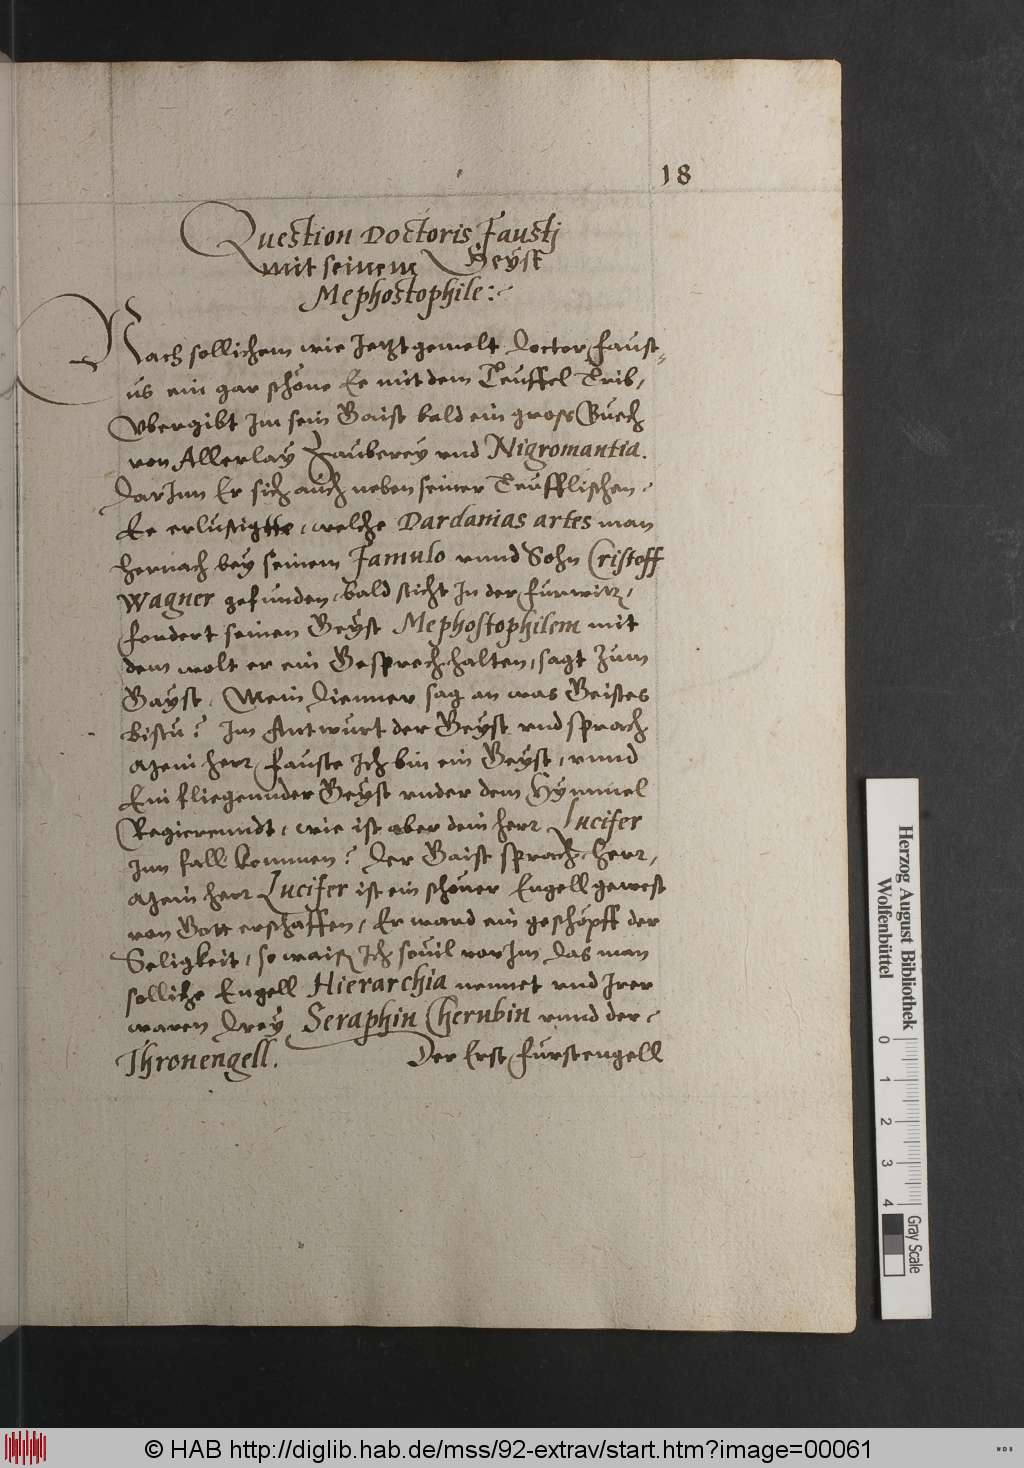 18
Question Doctoris Faustj
mit seinem Geyst
Mephostophile:
Nach sollichem wie Jetzt gemelt Doctor Faust-
us ein gar schöne Ee mit dem Teuffel Trib,
Vbergibt Im sein Gaist bald ein gross Buech
von Allerlay Zauberey vnd Nigromantia.
DarInn Er sich auch neben seiner Teufflischen
Ee erlustigtte, welche Dardanias artes man
hernach bey seinem Famulo vnnd Sohn Cristoff
Wagner gefunden, bald sticht In der furwitz,
fordert seinen Geyst Mephostophilem mit
dem wolt er ein Gesprech halten, sagt zum
Gayst, Mein Dienner sag an was Geistes
bistu? Im Antwurt der Geyst vnd sprach
Mein herr Fauste Ich bin ein Geyst, vnnd
Ein fliegennder Geyst vnder dem Hymmel
Regierenndt, wie ist aber dein herr Lucifer
Inn fall kommen? Der Gaist sprach, herr,
Mein herr Lucifer ist ein schöner Engell gewest
von Gott erschaffen, Er ward ein geschöpff der
Seligkeit, so waiß Ich souil von Im das man
solliche Engell Hierarchia nennet vnd Irer
waren Drey Seraphin Cherubin vnnd der
Thronengell. Der Erst furstengell
Herzog August Bibliothek
Wolfenbüttel
0 1 2 3 4
Gray Scale
© HAB http://diglib.hab.de/mss/92-extrav/start.htm?image=00061